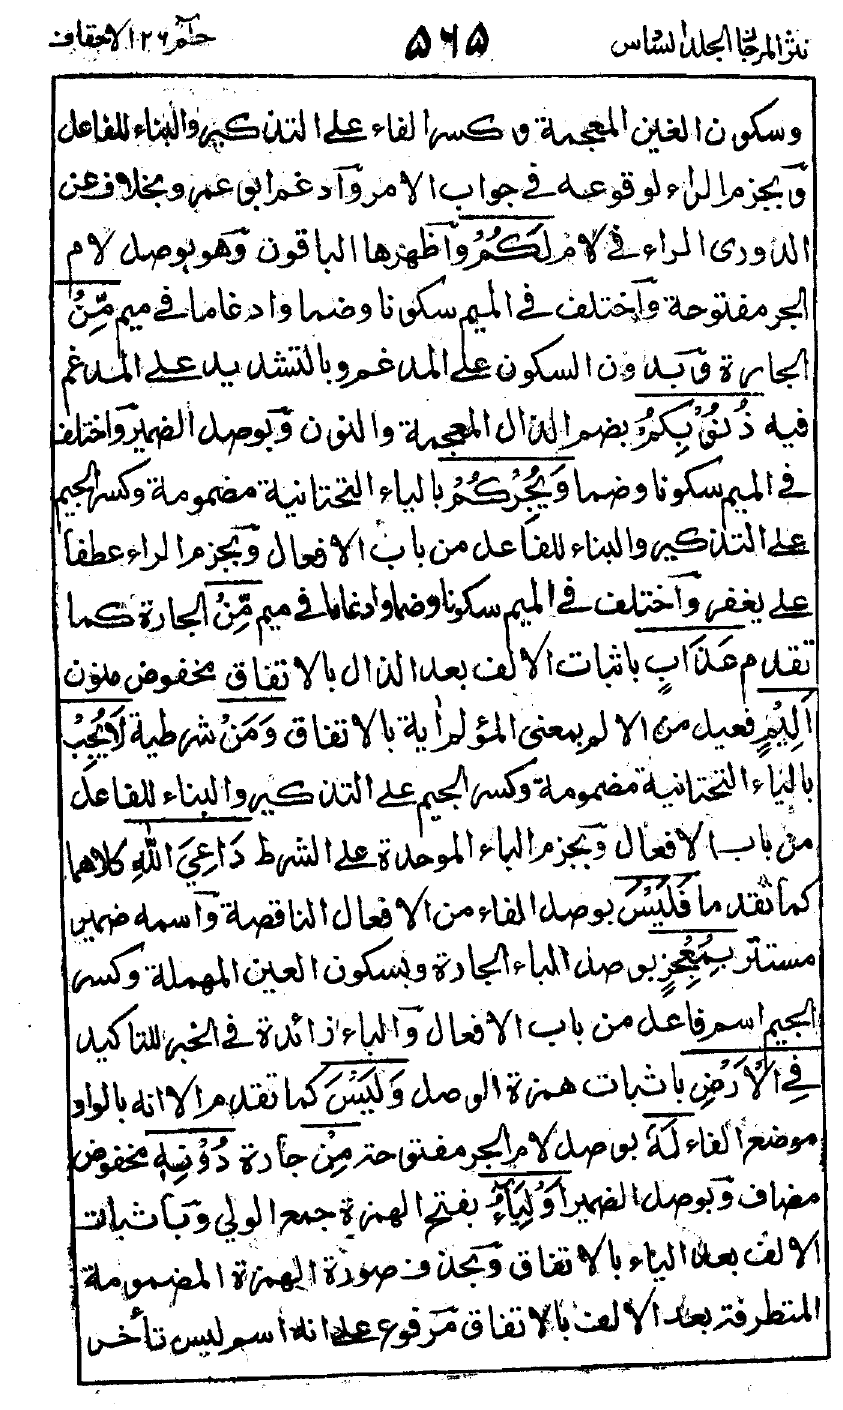 نثر المرجان المجلد السادس ٥٦٥ حٰمٓ ٢٦ الاحقاف
وسكون الغين المعجمة و كسر الفاء على التذكير والبناء للفاعل
وبجزم الراء لوقوعه في جواب الامر وآدغم ابو عمرو بخلاف عن
الدوري الراء في لام لَكُمْ وآظهرها الباقون وهو بوصل لام
الجر مفتوحة وآختلف في الميم سكونا وضما وادغاما في ميم مِّنْ
الجارة وبدون السكون على المدغم وبالتشديد على المدغم
فيه ذُنُوْبِكُمْ بضم الذال المعجمة والنون وبوصل الضمير وآختلف
في الميم سكونا وضما وَيُجِرْكُمْ بالياء التحتانية مضمومة وكسر الجيم
على التذكير والبناء للفاعل من باب الافعال وبجزم الراء عطفا
على يغفر وآختلف في الميم سكونا وضما وادغاما في ميم مِّنْ الجارة كما
تقدم عَذَابٍ باثبات الالف بعد الذال بالاتفاق مخفوض منون
اَلِيْمٍ فعيل من الالم بمعنى المؤلم اٰية بالاتفاق وَمَنْ شرطية لَا يُجِبْ
بالياء التحتانية مضمومة وكسر الجيم على التذكير والبناء للفاعل
من باب الافعال وبجزم الباء الموحدة على الشرط دَاعِيَ اللهِ كلاهما
كما تقدما فَلَيْسَ بوصل الفاء من الافعال الناقصة وآسمه ضمير
مستتر بِمُعْجِزٍ بوصل الباء الجارة وبسكون العين المهملة وكسر
الجيم اسم فاعل من باب الافعال والباء زائدة في الخبر للتاكيد
فِي الْاَرْضِ باثبات همزة الوصل وَلَيْسَ كما تقدم الا انه بالواو
موضع الفاء لَهٗ بوصل لام الجر مفتوحة مِنْ جارة دُوْنِهٖ مخفوض
مضاف وبوصل الضمير اَوْلِيَآءُ بفتح الهمزة جمع الولي وباثبات
الالف بعد الياء بالاتفاق وبحذف صورة الهمزة المضمومة
المتطرفة بعد الالف بالاتفاق مرفوع على انه اسم ليس تأخر